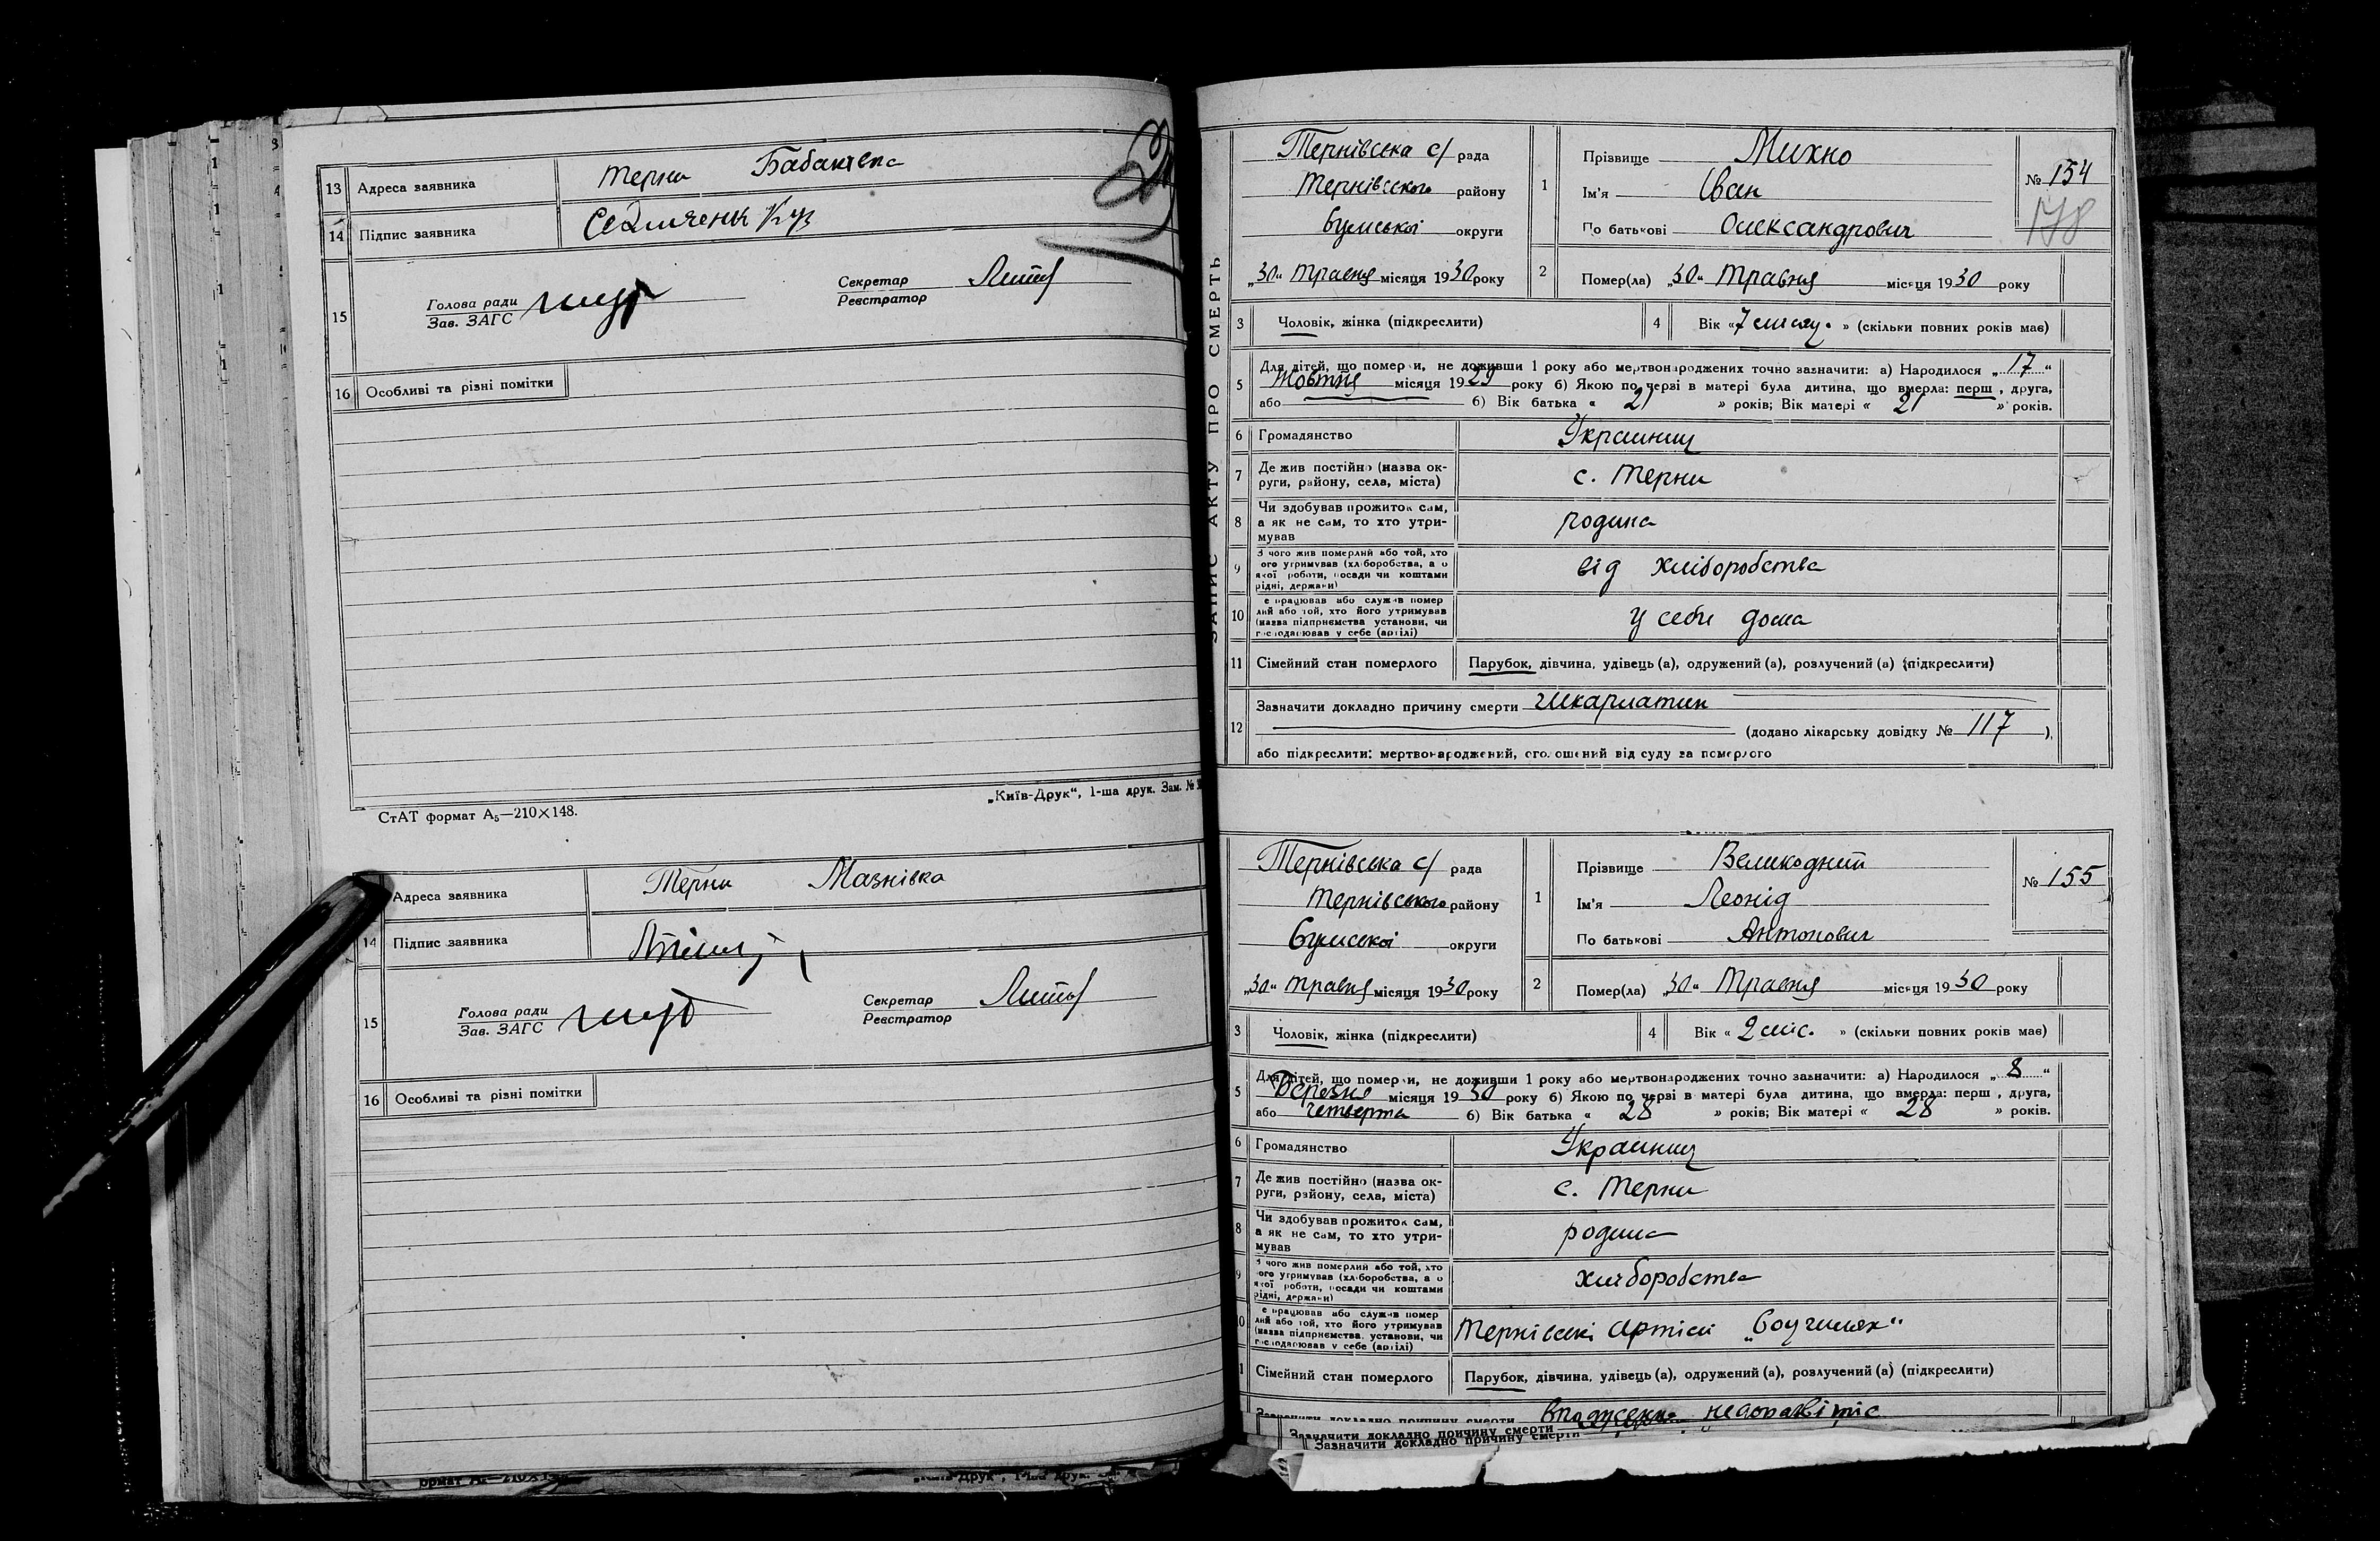 13 Адреса заявника Терни Бабаківка
14 Підпис заявника
15 Голова ради
Зав. ЗАГС
Секретар
Реєстратор
16 Особливі та різні помітки
СтАТ формат А₅—210×148.
„Київ-Друк“, 1-ша друк. Зам. №
Адреса заявника Терни Мазнівка
14 Підпис заявника
15 Голова ради
Зав. ЗАГС
Секретар
Реєстратор
16 Особливі та різні помітки
ЗАПИС АКТУ ПРО СМЕРТЬ
Тернівська с/ рада
Тернівського району
Сумської округи
„30“ травня місяця 1930 року
1 Прізвище Михно
Ім'я Іван
По батькові Олександрович
№ 154
178
2 Помер(ла) „30“ травня місяця 1930 року
3 Чоловік, жінка (підкреслити)
4 Вік « 7 місяц. » (скільки повних років має)
5 Для дітей, що померли, не доживши 1 року або мертвонароджених точно зазначити: а) Народилося „17“
Жовтня місяця 1929 року б) Якою по черзі в матері була дитина, що вмерла: перш , друга,
або б) Вік батька « 21 » років; Вік матері « 21 » років.
6 Громадянство Украинец
7 Де жив постійно (назва ок-
руги, району, села, міста) с. Терни
8 Чи здобував прожиток сам,
а як не сам, то хто утри-
мував родина
9 З чого жив померлий або той, хто
ого утримував (хліборобства, а о
якої роботи, посади чи коштами
рідні, держави) від хліборобства
10 е працював або служив помер
лий або той, хто його утримував
(назва підприємства установи, чи
господарював у себе (артілі) у себе дома
11 Сімейний стан померлого Парубок, дівчина, удівець (а), одружений (а), розлучений (а) (підкреслити)
12 Зазначити докладно причину смерти шкарлатин
(додано лікарську довідку № 117 ),
або підкреслити: мертвонароджений, оголошений від суду за померлого
Тернівська с/ рада
Тернівського району
Сумської округи
„30“ травня місяця 1930 року
1 Прізвище Великодний
Ім'я Леонід
По батькові Антонович
№ 155
2 Помер(ла) „30“ Травня місяця 1930 року
3 Чоловік, жінка (підкреслити)
4 Вік « 2 міс. » (скільки повних років має)
5 Для дітей, що померли, не доживши 1 року або мертвонароджених точно зазначити: а) Народилося „8“
Березня місяця 1930 року б) Якою по черзі в матері була дитина, що вмерла: перш , друга,
або четверта б) Вік батька « 28 » років; Вік матері « 28 » років.
6 Громадянство Украинец
7 Де жив постійно (назва ок-
руги, району, села, міста) с. Терни
8 Чи здобував прожиток сам,
а як не сам, то хто утри-
мував родина
9 З чого жив померлий або той, хто
ого утримував (хліборобства, а о
якої роботи, посади чи коштами
рідні, держави) хліборобства
е працював або служив помер
лий або той, хто його утримував
(назва підприємства. установи, чи
господарював у себе (артілі) Тернівскі Артілі
Сімейний стан померлого Парубок, дівчина, удівець (а), одружений (а), розлучений (а) (підкреслити)
Зазначити докладно причину смерти
Зазначити докладно причину смерти
Зазначити докладно причину смерти